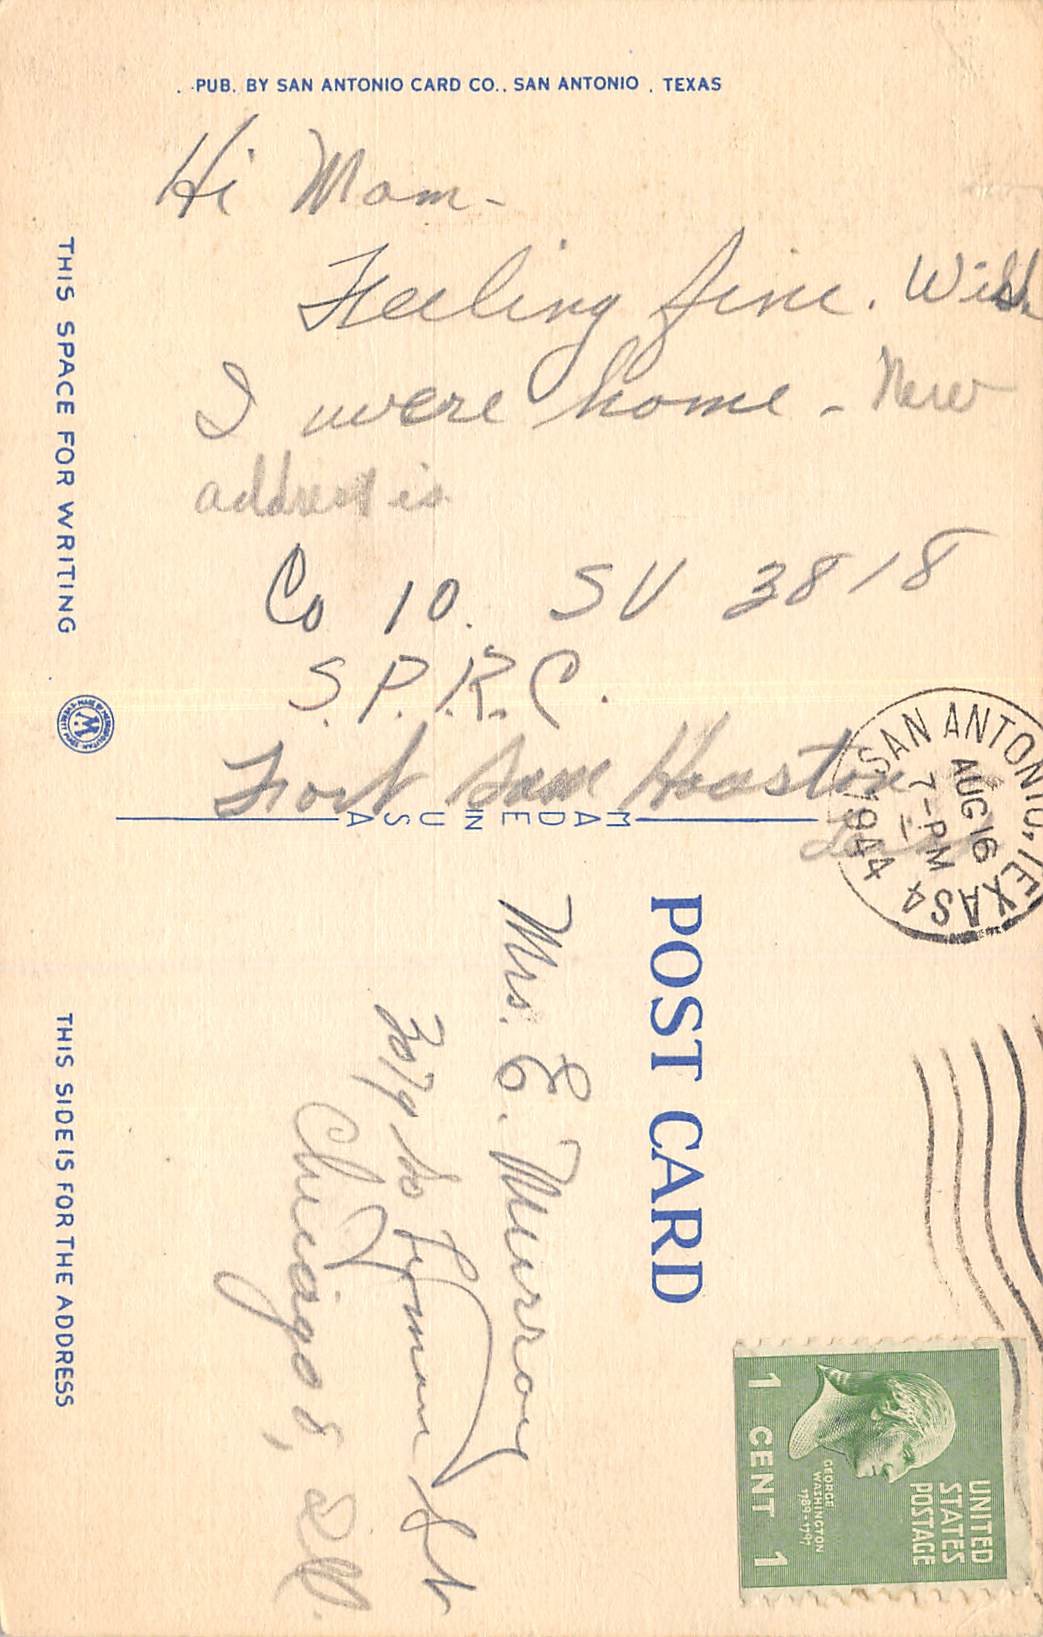 PUB. BY SAN ANTONIO CARD CO., SAN ANTONIO, TEXAS
Hi Mom-
Feeling fine. Wish
I were home - New
address is
Co 10. SU 3818
S.P.R.C.
Fort Sam Houston
THIS SPACE FOR WRITING
MADE IN USA
SAN ANTONIO, TEXAS 4
AUG 16
7-PM
1944
POST CARD
Mrs. E. Murray
So Lyman St
Chicago 8, Ill.
THIS SIDE IS FOR THE ADDRESS
UNITED
STATES
POSTAGE
GEORGE
WASHINGTON
1789-1797
1 CENT 1